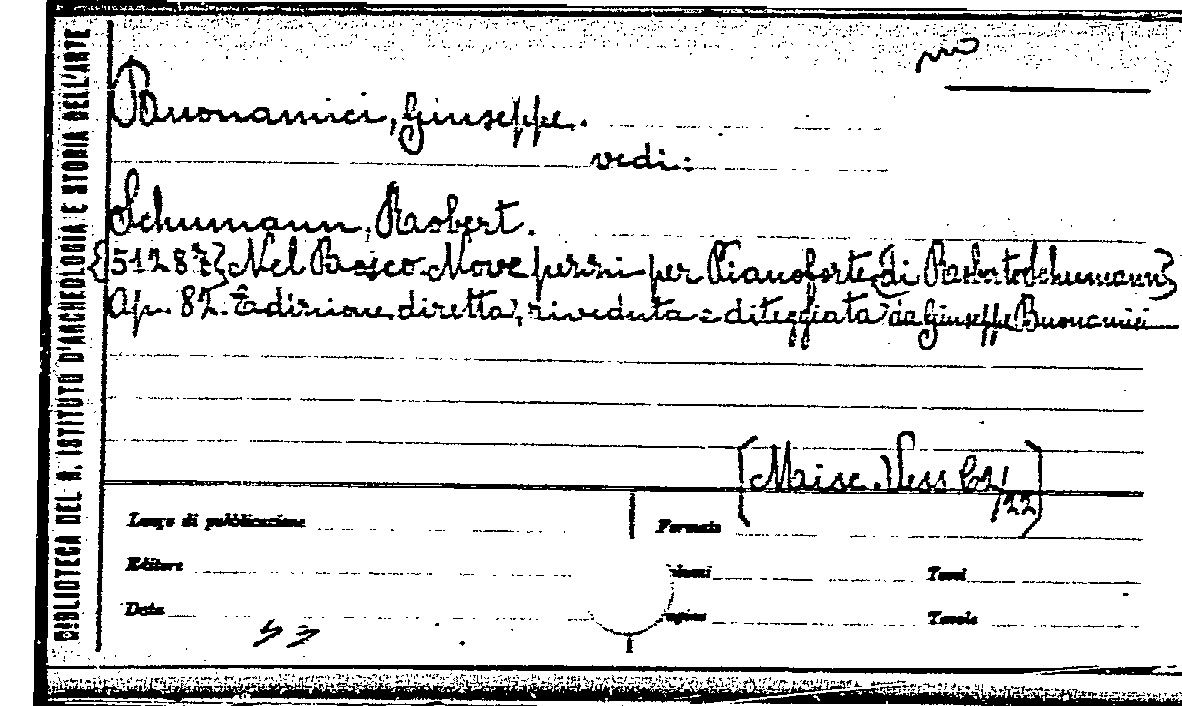 BIBLIOTECA DEL R. ISTITUTO D'ARCHEOLOGIA E STORIA DELL'ARTE
Buonamici, Giuseppe.
vedi:
Schumann, Robert.
Nel Bosco. Nove pezzi per Pianoforte {di Roberto Schumann}
Op. 82. Edizione diretta, riveduta e diteggiata da Giuseppe Buonamici
[Misc. Vess
Luogo di pubblicazione
Formato
Editore
Tomi
Data
Tavole